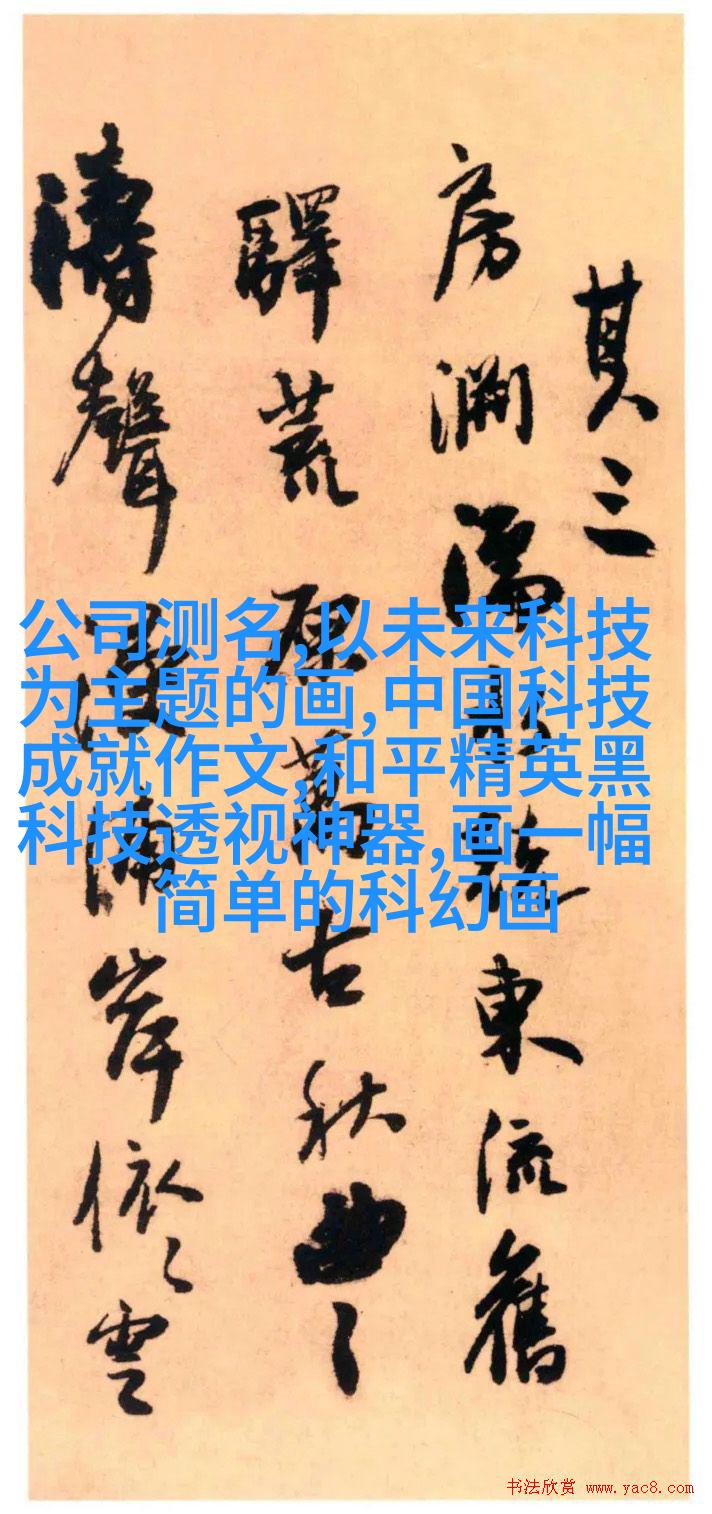 其三
房 東流舊
驛荒原萬古秋曲〻
濤聲 岸依〻雲
公司测名,以未来科技
为主题的画,中国科技
成就作文,和平精英黑
科技透视神器,画一幅
简单的科幻画
书法欣赏 www.yac8.com